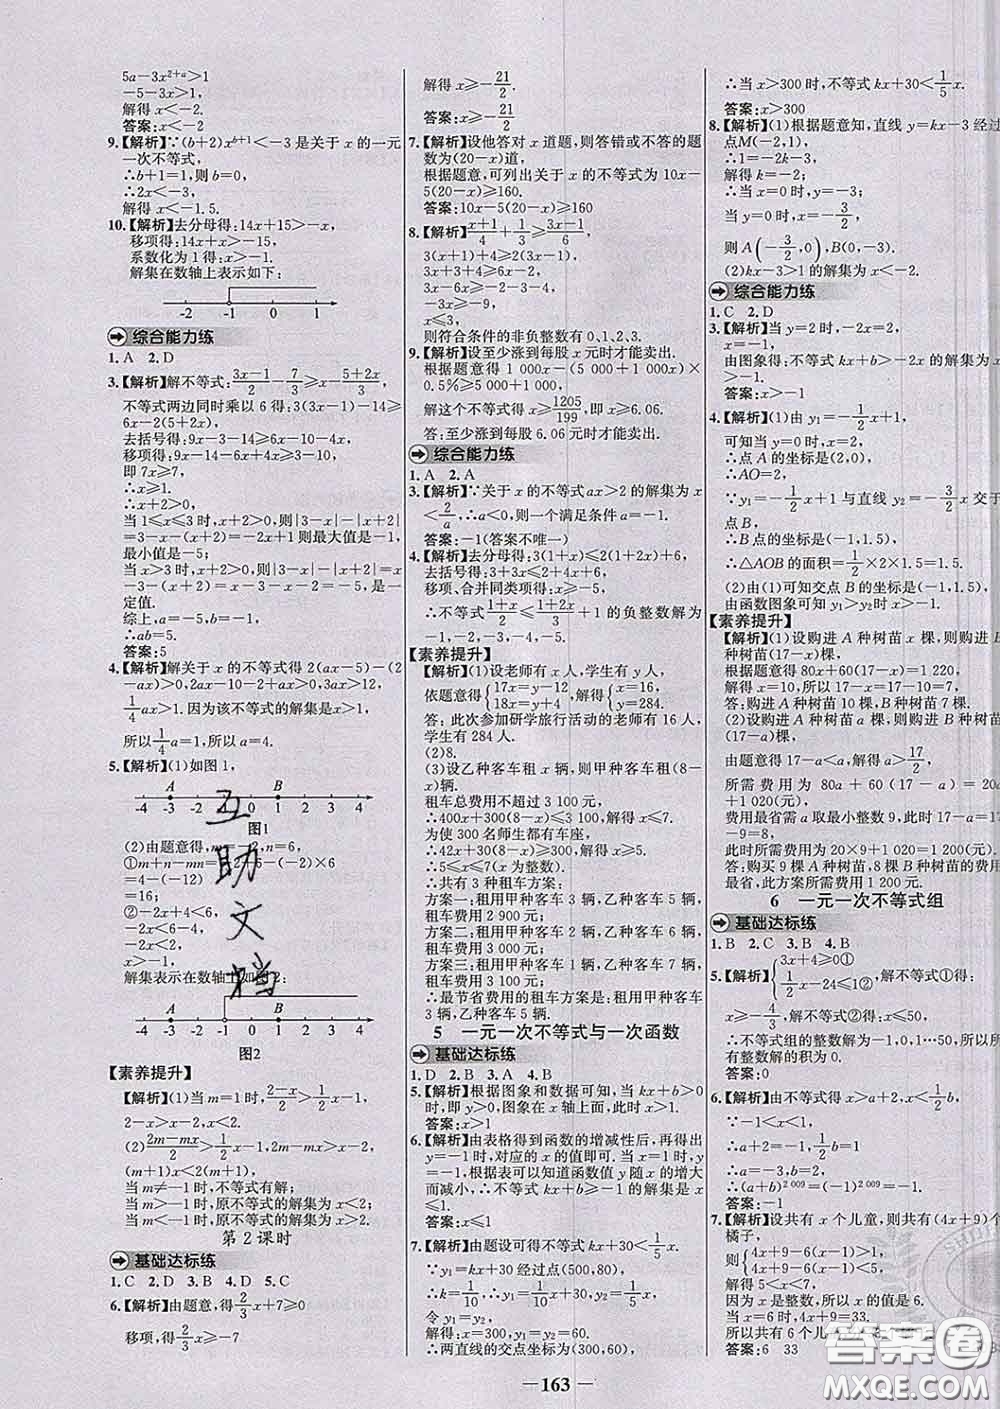 5a-3x²⁺ᵃ>1
-5-3x>1,
解得 x<-2.
答案:x<-2
9.【解析】∵(b+2)xᵇ⁺¹<-3是关于 x 的一元
一次不等式,
∴b+1=1,则 b=0,
∴2x<-3,
解得 x<-1.5.
10.【解析】去分母得:14x+15>-x,
移项得:14x+x>-15,
系数化为 1 得:x>-1,
解集在数轴上表示如下:
-2 -1 0 1
综合能力练
1.A 2.D
3.【解析】解不等式:(3x-1)/2-7/3≥x-(5+2x)/3,
不等式两边同时乘以 6 得:3(3x-1)-14≥
6x-2(5+2x),
去括号得:9x-3-14≥6x-10-4x,
移项得:9x-6x+4x≥3+14-10,
即 7x≥7,
∴x≥1,
∴x+2>0,
当 1≤x≤3 时,x+2>0,则|3-x|-|x+2|
=3-x-(x+2)=-2x+1,则最大值是-1,
最小值是-5;
当 x>3 时,x+2>0,则|3-x|-|x+2|=x-
3-(x+2)=x-3-x-2=-5,是一
定值.
综上,a=-5,b=-1,
∴ab=5.
答案:5
4.【解析】解关于 x 的不等式得 2(ax-5)-(2
-ax)>0,去括号得 2ax-10-2+ax>0,
1/4ax>1. 因为该不等式的解集是x>1,
所以1/4a=1,所以 a=4.
5.【解析】(1)如图 1,
A B
-4 -3 -2 -1 0 1 2 3 4
图1
(2)由题意得,m=-2,n=6,
①m+n-mn=-2+6-(-2)×6
=4-(-12)
=16;
②-2x+4<6,
-2x<6-4,
-2x<2,
x>-1.
解集表示在数轴上如图 2:
A B
-4 -3 -2 -1 0 1 2 3 4
图2
【素养提升】
【解析】(1)当 m=1 时,(2-x)/2>1/2x-1,
2-x>x-2,解得x<2.
(2)(2m-mx)/2>1/2x-1,2m-mx>x-2,
(m+1)x<2(m+1),
当 m≠-1 时,不等式有解;
当 m>-1 时,原不等式的解集为 x<2;
当 m<-1 时,原不等式的解集为 x>2.
第 2 课时
基础达标练
1.C 2.D 3.B 4.D 5.C
6.【解析】由题意,得2/3x+7≥0
移项,得2/3x≥-7
解得 x≥-21/2.
答案:x≥-21/2
7.【解析】设他答对 x 道题,则答错或不答的题
数为(20-x)道,
根据题意,可列出关于 x 的不等式为 10x-
5(20-x)≥160.
答案:10x-5(20-x)≥160
8.【解析】(x+1)/4+1/3≥(3x-1)/6,
3(x+1)+4≥2(3x-1),
3x+3+4≥6x-2,
3x-6x≥-2-3-4,
-3x≥-9,
x≤3.
则符合条件的非负整数有 0,1,2,3.
9.【解析】设至少涨到每股 x 元时才能卖出.
根据题意得 1 000x-(5 000+1 000x)×
0.5%≥5 000+1 000,
解这个不等式得 x≥1205/199,即 x≥6.06.
答:至少涨到每股 6.06 元时才能卖出.
综合能力练
1.A 2.A
3.【解析】∵关于 x 的不等式ax>2 的解集为 x
<2/a,∴a<0,则一个满足条件 a=-1.
答案:-1(答案不唯一)
4.【解析】去分母得:3(1+x)≤2(1+2x)+6,
去括号得:3+3x≤2+4x+6,
移项、合并同类项得:-x≤5,
解得:x≥-5,
∴不等式(1+x)/2≤(1+2x)/3+1 的负整数解为
-1,-2,-3,-4,-5.
【素养提升】
【解析】(1)设老师有 x 人,学生有 y 人,
依题意得{17x=y-12 18x=y+4,解得{x=16, y=284.
答:此次参加研学旅行活动的老师有 16 人,
学生有 284 人.
(2)8.
(3)设乙种客车租 x 辆,则甲种客车租(8-
x)辆.
租车总费用不超过 3 100 元,
∴400x+300(8-x)≤3 100,解得:x≤7,
为使 300 名师生都有车座,
∴42x+30(8-x)≥300,解得:x≥5,
∴5≤x≤7(x 为整数),
∴共有 3 种租车方案:
方案一:租用甲种客车 3 辆,乙种客车 5 辆,
租车费用 2 900 元;
方案二:租用甲种客车 2 辆,乙种客车 6 辆,
租车费用 3 000 元;
方案三:租用甲种客车 1 辆,乙种客车 7 辆,
租车费用 3 100 元;
∴最节省费用的租车方案是:租用甲种客车 3
辆,乙种客车 5 辆.
5 一元一次不等式与一次函数
基础达标练
1.D 2.B 3.A 4.D
5.【解析】根据图象和数据可知,当 kx+b>0
时,即 y>0,图象在 x 轴上面,此时 x>1.
答案:x>1
6.【解析】由表格得到函数的增减性后,再得出
y=-1 时,对应的 x 的值即可. 当 x=1 时,y
=-1,根据表可以知道函数值 y 随 x 的增大
而减小,∴不等式 kx+b≥-1 的解集是x≤1.
答案:x≤1
7.【解析】由题设可得不等式 kx+30<1/5x.
∵y₁=kx+30 经过点(500,80),
∴k=1/10,∴y₁=1/10x+30,y₂=1/5x,
令 y₁=y₂,
解得:x=300,y=60,
∴两直线的交点坐标为(300,60),
∴当 x>300 时,不等式 kx+30<1/5x.
答案:x>300
8.【解析】(1)根据题意知,直线 y=kx-3 经过
点M(-2,1),
∴1=-2k-3.
解得 k=-2;
∴当 x=0 时,y=-3;
当 y=0 时,x=-3/2,
则 A(-3/2,0),B(0,-3).
(2)kx-3>1 的解集为 x<-2.
综合能力练
1.C 2.D
3.【解析】当 y=2 时,-2x=2,
x=-1,
由图象得:不等式 kx+b>-2x 的解集为 x
>-1.
答案:x>-1
4.【解析】(1)由 y₁=-1/2x+1,
可知当 y=0 时,x=2,
∴点 A 的坐标是(2,0),
∴AO=2,
∵y₁=-1/2x+1 与直线 y₂=-3/2x 交于
点 B,
∴B 点的坐标是(-1,1.5),
∴△AOB 的面积=1/2×2×1.5=1.5.
(2)由(1)可知交点 B 的坐标是(-1,1.5),
由函数图象可知 y₁>y₂ 时,x>-1.
【素养提升】
【解析】(1)设购进 A 种树苗 x 棵,则购进 B
种树苗(17-x)棵,
根据题意得 80x+60(17-x)=1 220,
解得 x=10,所以 17-x=17-10=7,
答:购进 A 种树苗 10 棵,B 种树苗 7 棵.
(2)设购进 A 种树苗 a 棵,则购进 B 种树苗
(17-a)棵,
由题意得 17-a<a,解得 a>17/2,
所需费用为 80a+60(17-a)=20a
+1 020(元),
费用最省需 a 取最小整数 9,此时 17-a=17
-9=8,
此时所需费用为 20×9+1 020=1 200(元).
答:购买 9 棵 A 种树苗,8 棵 B 种树苗费用
最省,此方案所需费用 1 200 元.
6 一元一次不等式组
基础达标练
1.B 2.C 3.B 4.B
5.【解析】{3x+4≥0① 1/2x-24≤1②,解不等式①得:
x≥-4/3,解不等式②得:x≤50,
∴不等式组的整数解为-1,0,1…50,所以所
有整数解的积为 0.
答案:0
6.【解析】由不等式得 x>a+2,x<1/2b,
∵-1<x<1,
∴a+2=-1,1/2b=1
∴a=-3,b=2,
∴(a+b)²⁰⁰⁹=(-1)²⁰⁰⁹=-1.
答案:-1
7.【解析】设共有 x 个儿童,则共有(4x+9)个
橘子,
则{4x+9-6(x-1)>0 4x+9-6(x-1)<3
解得 5<x<7.
因为 x 是整数,所以 x 的值是 6.
当 x=6 时,4x+9=33.
所以共有 6 个儿童
答案:6 33
互助文档
答案圈
MXQE.COM
— 163 —